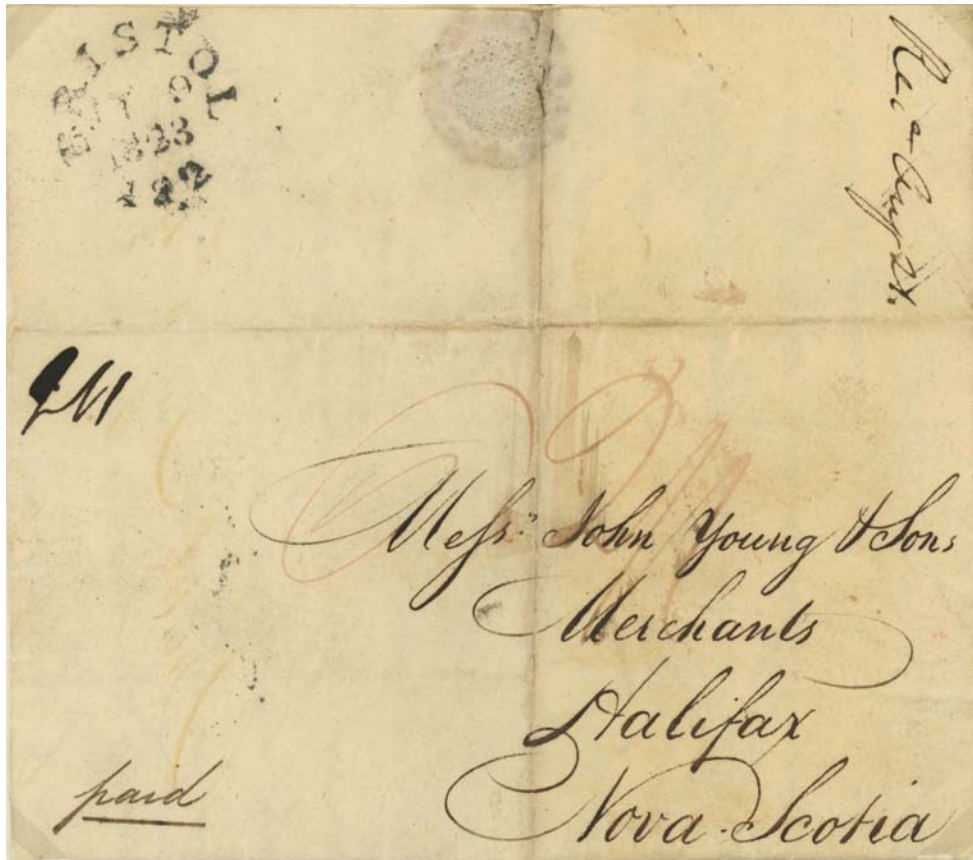 BRISTOL
9
1823
122
Mess.rs John Young & Sons
Merchants
Halifax
Nova-Scotia
paid